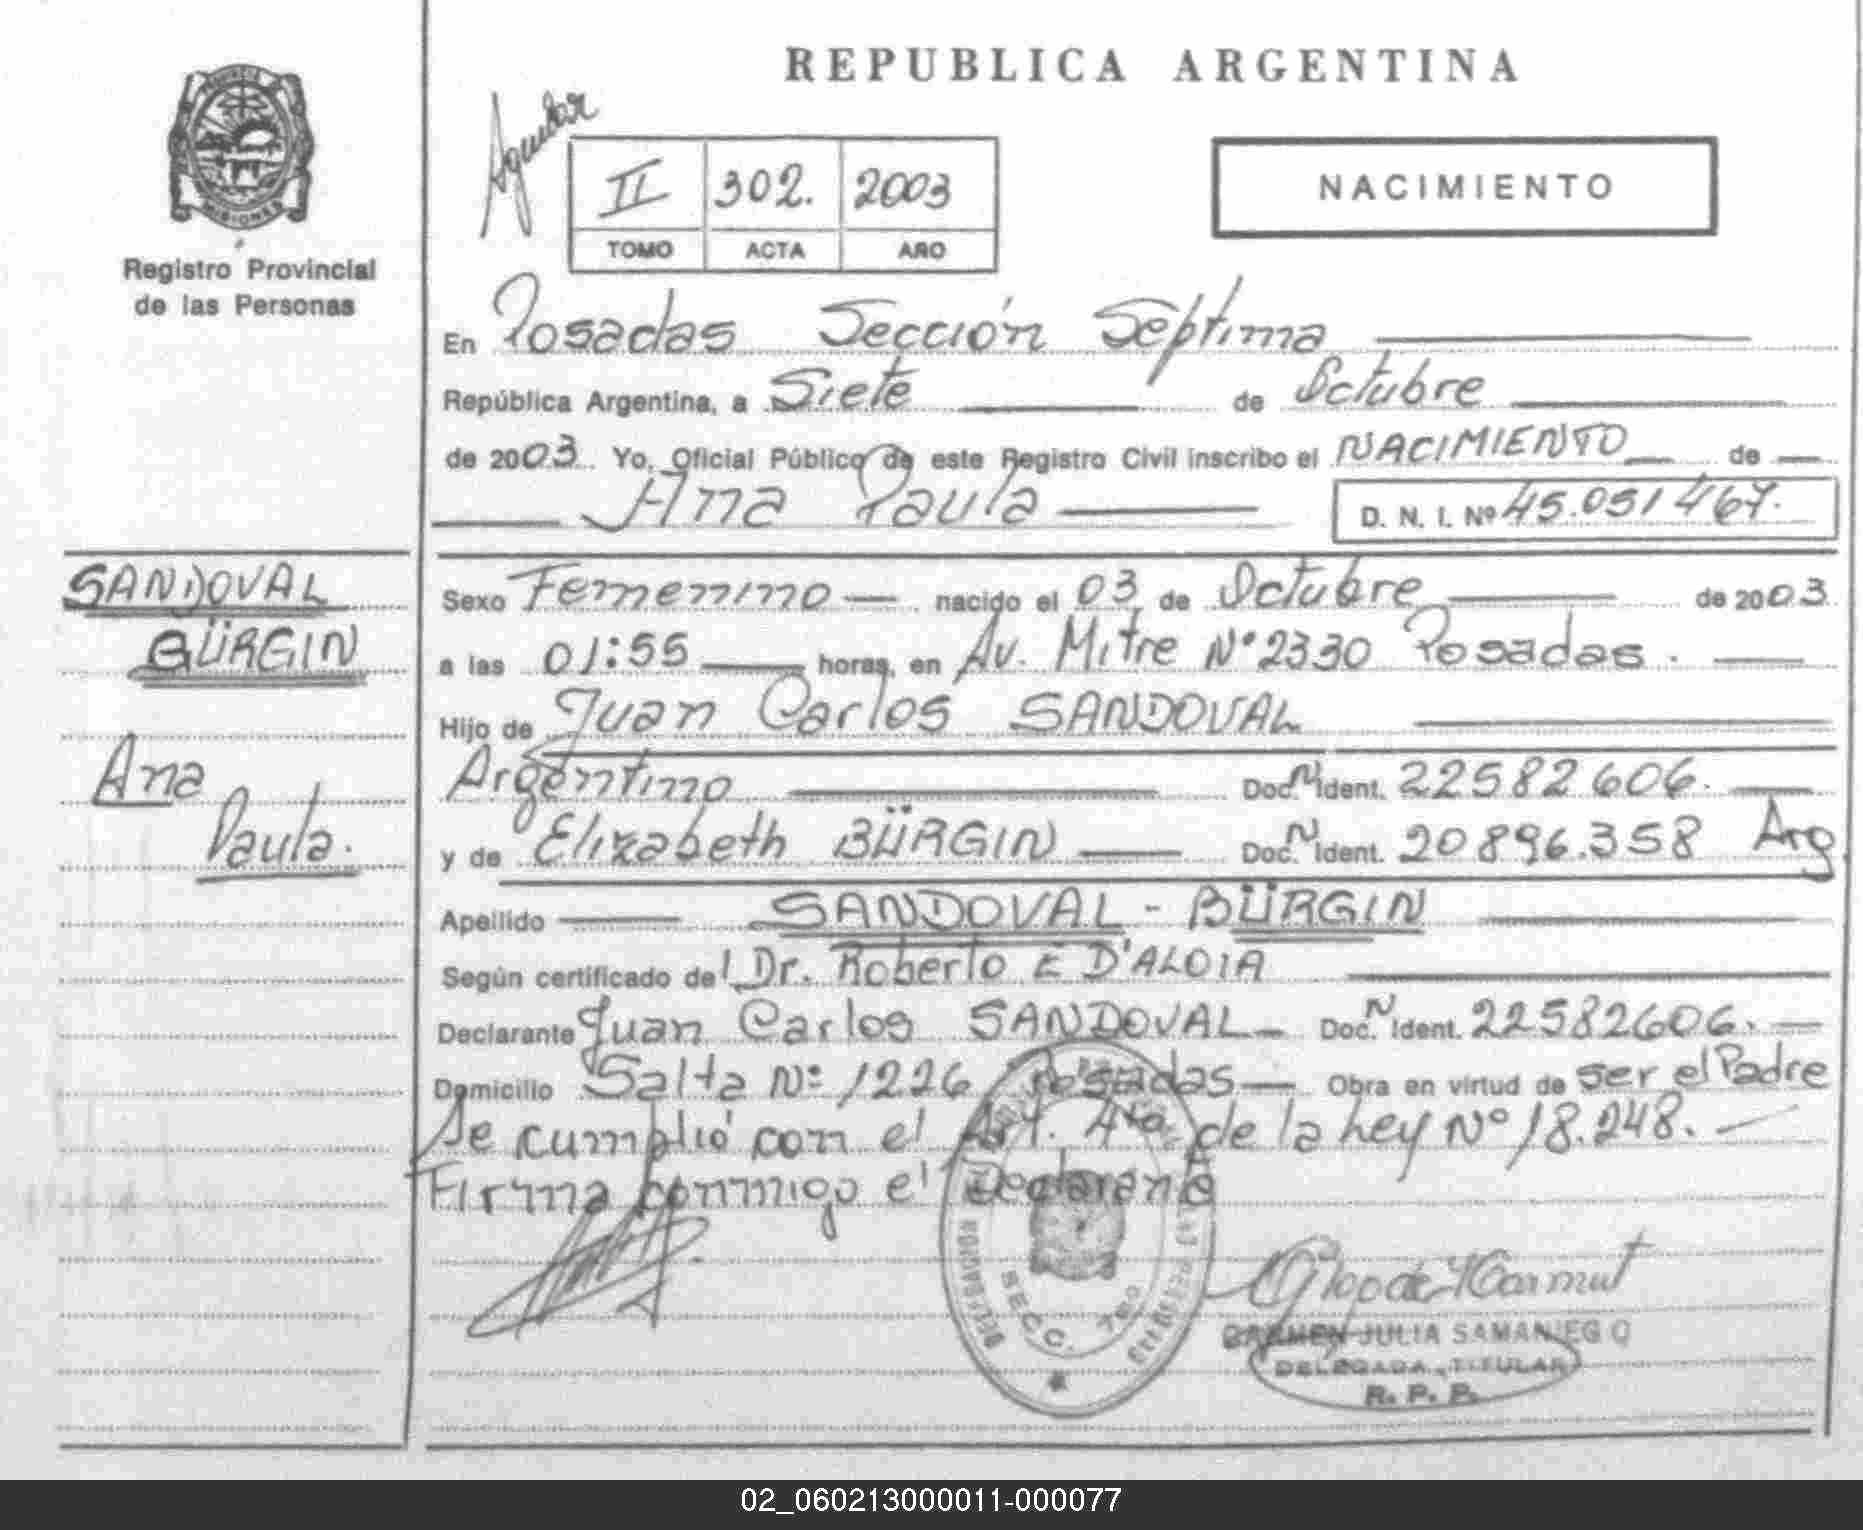 REPUBLICA ARGENTINA
PROVINCIA
MISIONES
Registro Provincial
de las Personas
Aguilar
II 302. 2003
TOMO ACTA AÑO
NACIMIENTO
En Posadas Sección Séptima
República Argentina, a Siete de Octubre
de 2003. Yo, Oficial Público de este Registro Civil inscribo el NACIMIENTO de
Ana Paula D. N. I. Nº 45.051467.
SANDOVAL
GÜRGIN
Ana
Paula.
Sexo Femenino nacido el 03 de Octubre de 2003.
a las 01:55 horas, en Av. Mitre Nº 2330 Posadas.
Hijo de Juan Carlos SANDOVAL
Argentino Doc. N Ident. 22582606.
y de Elizabeth BÜRGIN Doc. N Ident. 20896.358 Arg
Apellido SANDOVAL - BÜRGIN
Según certificado del Dr. Roberto E D'ALOIA
Declarante Juan Carlos SANDOVAL Doc. N Ident. 22582606.
Domicilio Salta Nº 1226 Posadas Obra en virtud de ser el Padre
Se cumplió con el Art. 4to de la Ley Nº 18.248.
Firma conmigo el Declarante
DELEGACION SECC. 7ma
CARMEN JULIA SAMANIEGO
DELEGADA TITULAR
R. P. P.
02_060213000011-000077